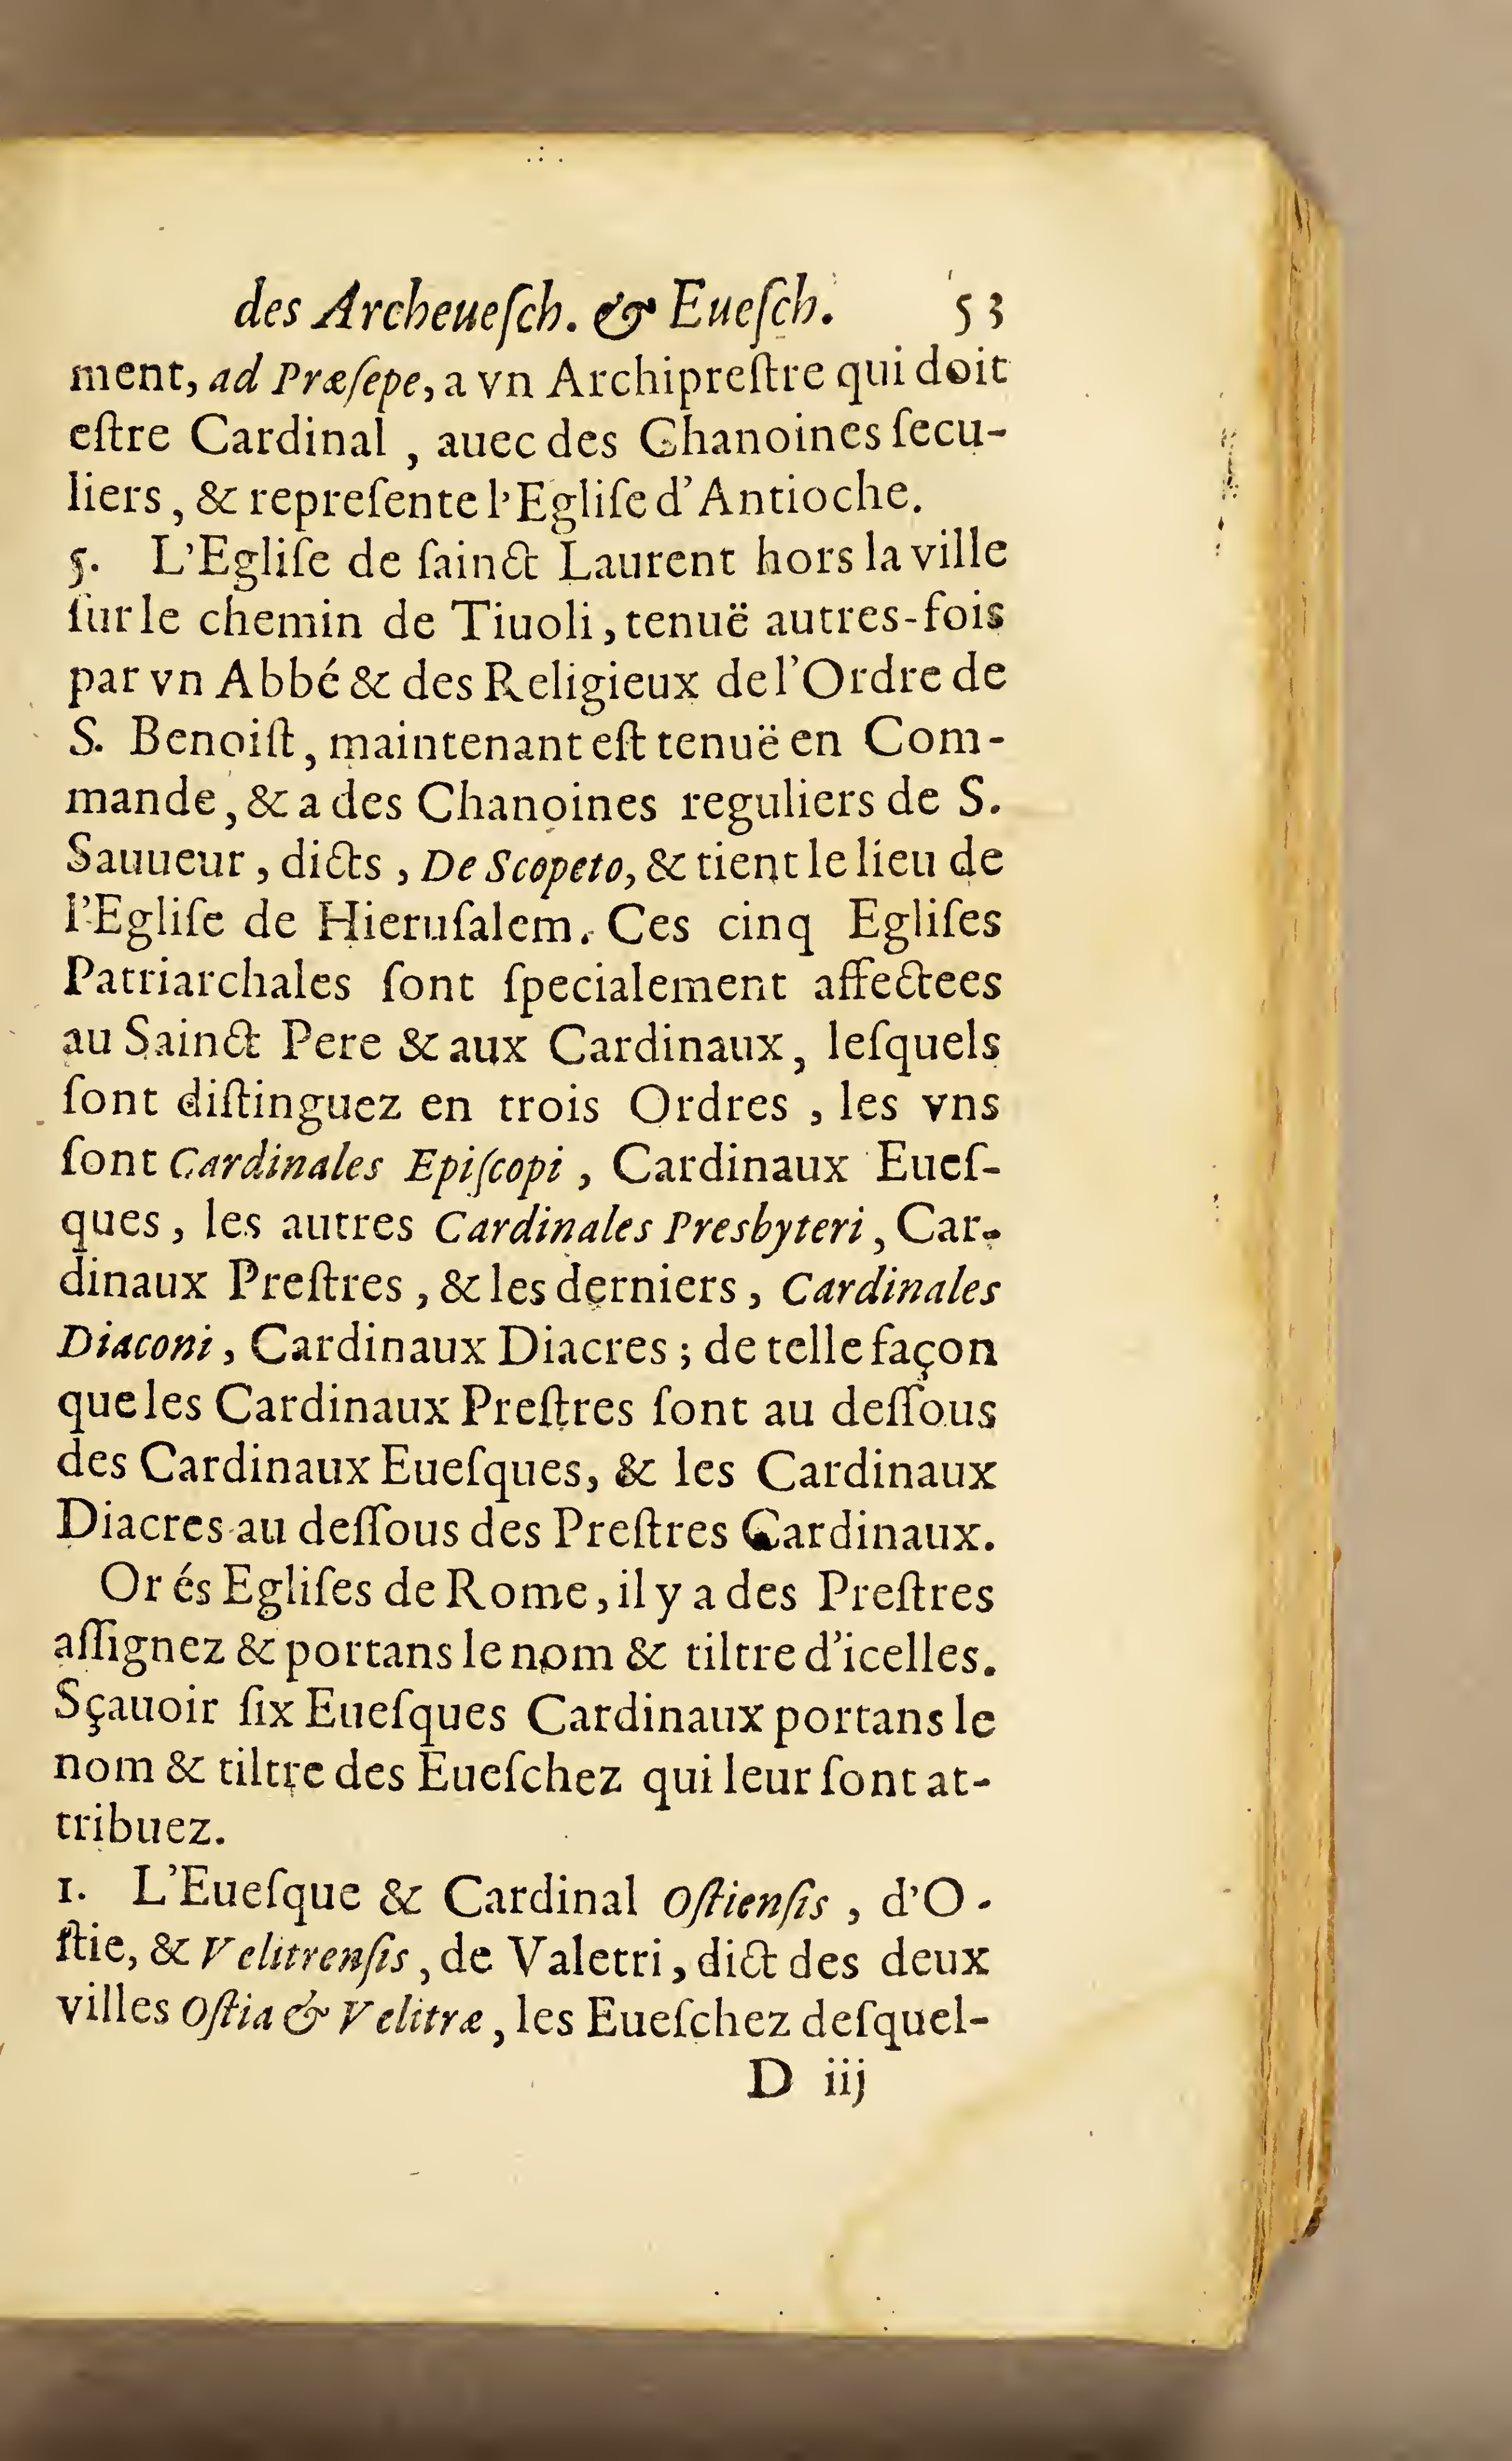 des Archeueſch. & Eueſch. 53
ment, ad Præſepe, a vn Archipreſtre qui doit
eſtre Cardinal, auec des Chanoines ſecu-
liers, & repreſente l'Egliſe d'Antioche.
5. L'Egliſe de ſainct Laurent hors la ville
ſur le chemin de Tiuoli, tenuë autres-fois
par vn Abbé & des Religieux de l'Ordre de
S. Benoiſt, maintenant eſt tenuë en Com-
mande, & a des Chanoines reguliers de S.
Sauueur, dicts, De Scopeto, & tient le lieu de
l'Egliſe de Hieruſalem. Ces cinq Egliſes
Patriarchales ſont ſpecialement affectees
au Sainct Pere & aux Cardinaux, leſquels
ſont diſtinguez en trois Ordres, les vns
ſont Cardinales Epiſcopi, Cardinaux Eueſ-
ques, les autres Cardinales Presbyteri, Car-
dinaux Preſtres, & les derniers, Cardinales
Diaconi, Cardinaux Diacres; de telle façon
que les Cardinaux Preſtres ſont au deſſous
des Cardinaux Eueſques, & les Cardinaux
Diacres au deſſous des Preſtres Cardinaux.
Or és Egliſes de Rome, il y a des Preſtres
aſſignez & portans le nom & tiltre d'icelles.
Sçauoir ſix Eueſques Cardinaux portans le
nom & tiltre des Eueſchez qui leur ſont at-
tribuez.
1. L'Eueſque & Cardinal Oſtienſis, d'O-
ſtie, & Velitrenſis, de Valetri, dict des deux
villes Oſtia & Velitræ, les Eueſchez deſquel-
D iij